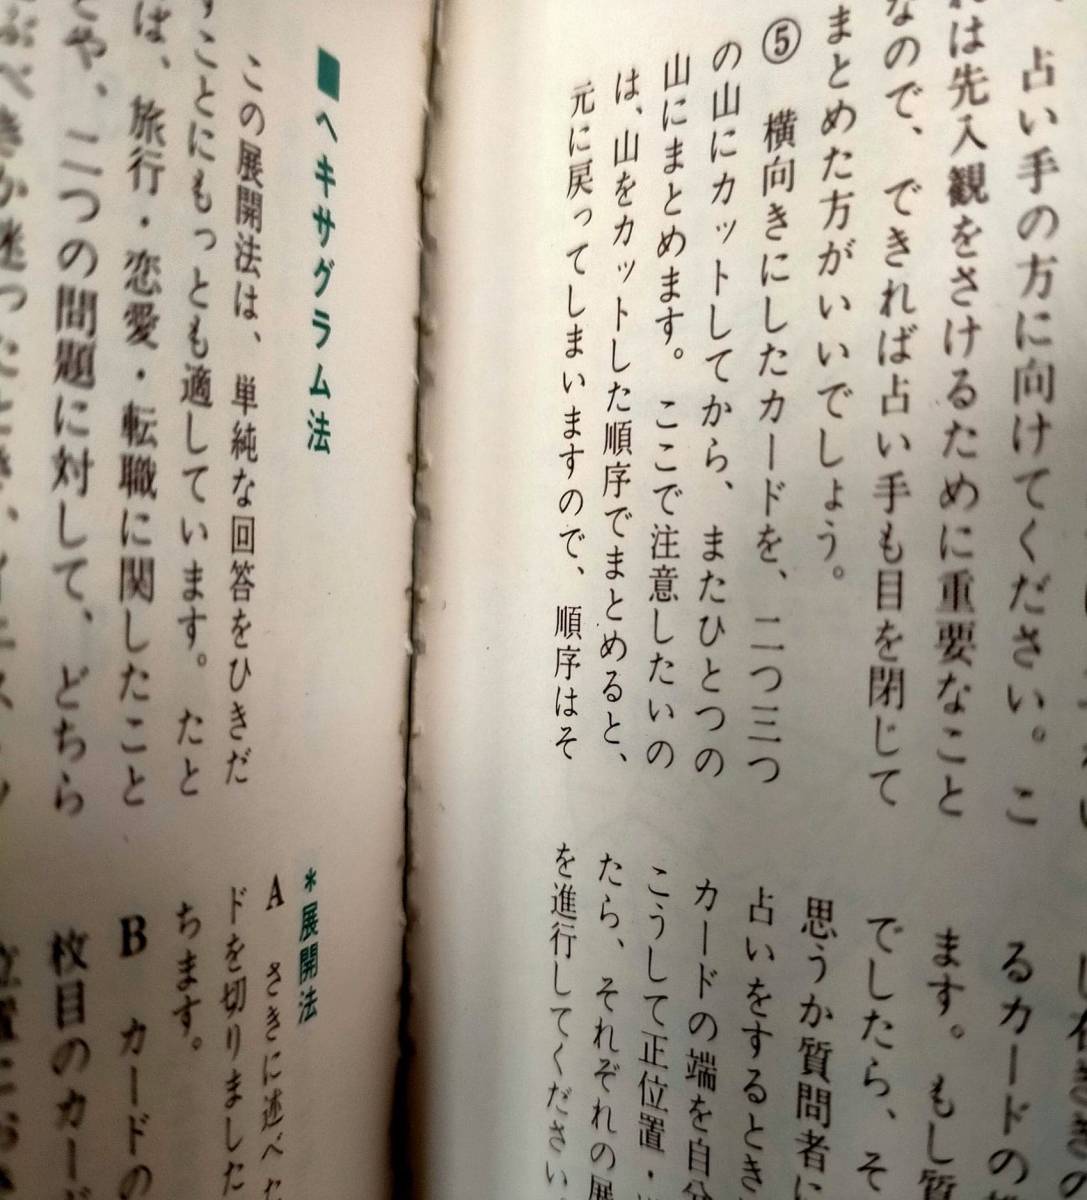 占い手の方に向けてください。こ
れは先入観をさけるために重要なこと
なので、できれば占い手も目を閉じて
まとめた方がいいでしょう。
⑤　横向きにしたカードを、二つ三つ
の山にカットしてから、またひとつの
山にまとめます。ここで注意したいの
は、山をカットした順序でまとめると、
元に戻ってしまいますので、順序はそ
るカードの
ます。もし質
でしたら、そ
思うか質問者に
占いをするとき
カードの端を自分
こうして正位置・
たら、それぞれの展
を進行してください。
■ヘキサグラム法
この展開法は、単純な回答をひきだ
すことにもっとも適しています。たと
ば、旅行・恋愛・転職に関したこと
とや、二つの問題に対して、どちら
ぶべきか迷ったとき、イエス・
＊展開法
A　さきに述べた
ドを切りました
ちます。
B　カードの
枚目のカード
位置におき